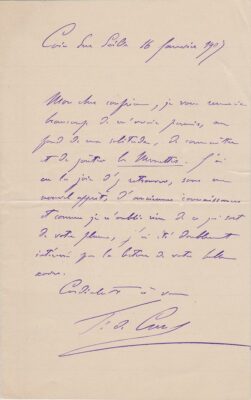 16 Janvier 19
Mon cher confrère, je vous remercie
beaucoup de m'avoir permis, au
fond de ma solitude, de connaître
et de goûter la J'ai
eu la joie d'y retrouver, sous un
nouvel aspect, d'anciennes connaissances
et comme je n'oublie rien de ce qui sort
de votre plume, j'ai été doublement
intéressé par la lecture de votre belle
œuvre.
Cordialement à vous
F. de